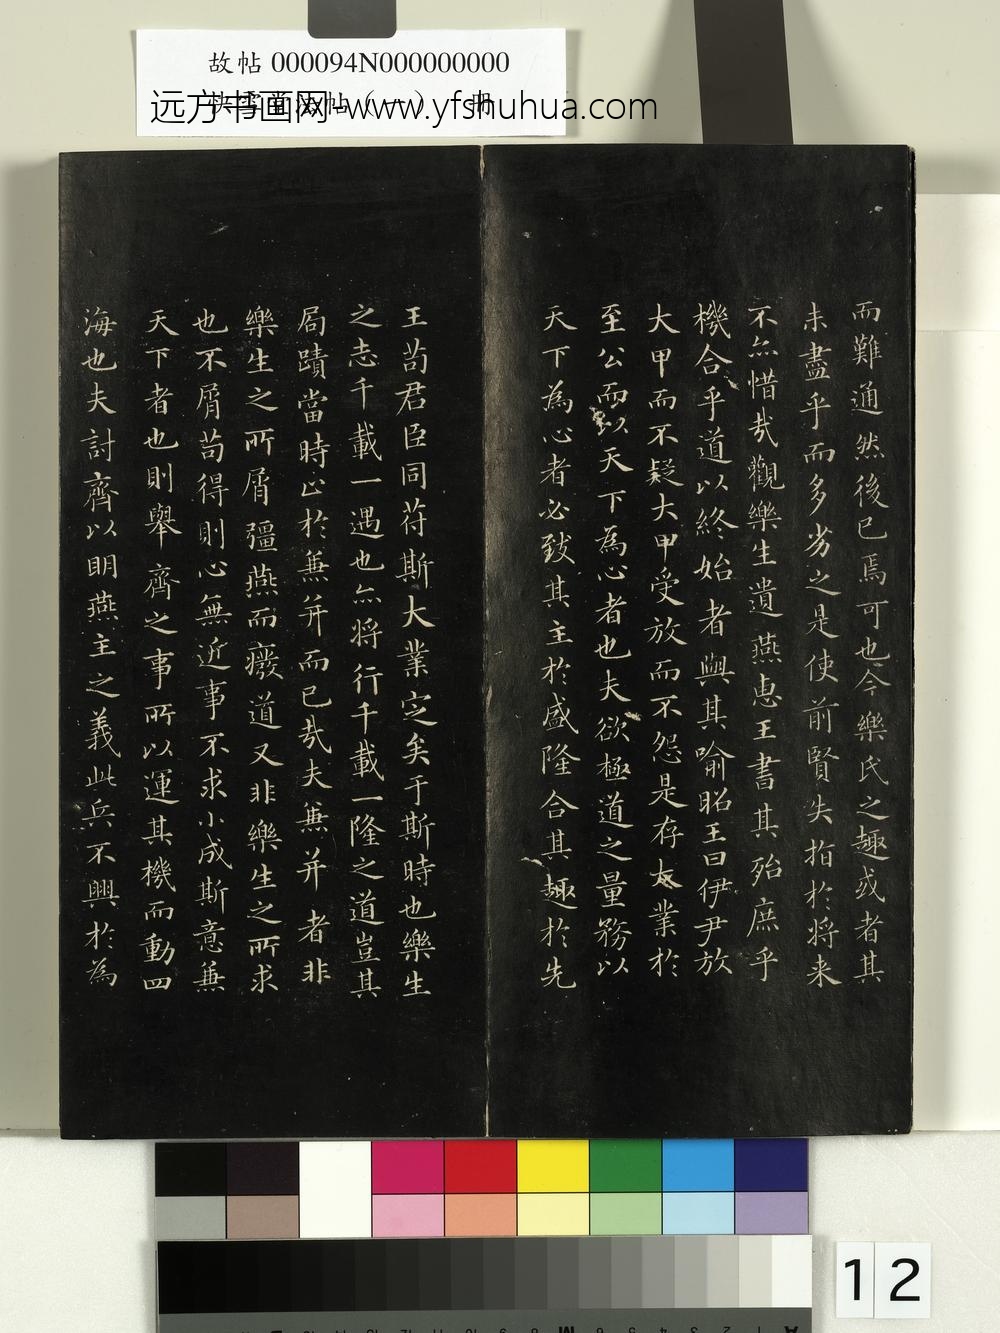 故帖 000094N000000000
远方书画网-www.yfshuhua.com
而難通然後已焉可也今樂氏之趣或者其
未盡乎而多劣之是使前賢失指於將来
不亦惜㦲觀樂生遺燕惠王書其殆庶乎
機合乎道以終始者與其喻昭王曰伊尹放
大甲而不疑大甲受放而不怨是存大業於
至公而以天下為心者也夫欲極道之量務以
天下為心者必致其主於盛隆合其趣於先
王苟君臣同苻斯大業定矣于斯時也樂生
之志千載一遇也亦将行千載一隆之道豈其
局蹟當時止於兼并而已㦲夫兼并者非
樂生之所屑彊燕而癈道又非樂生之所求
也不屑苟得則心無近事不求小成斯意兼
天下者也則舉齊之事所以運其機而動四
海也夫討齊以明燕主之義此兵不興於為
12